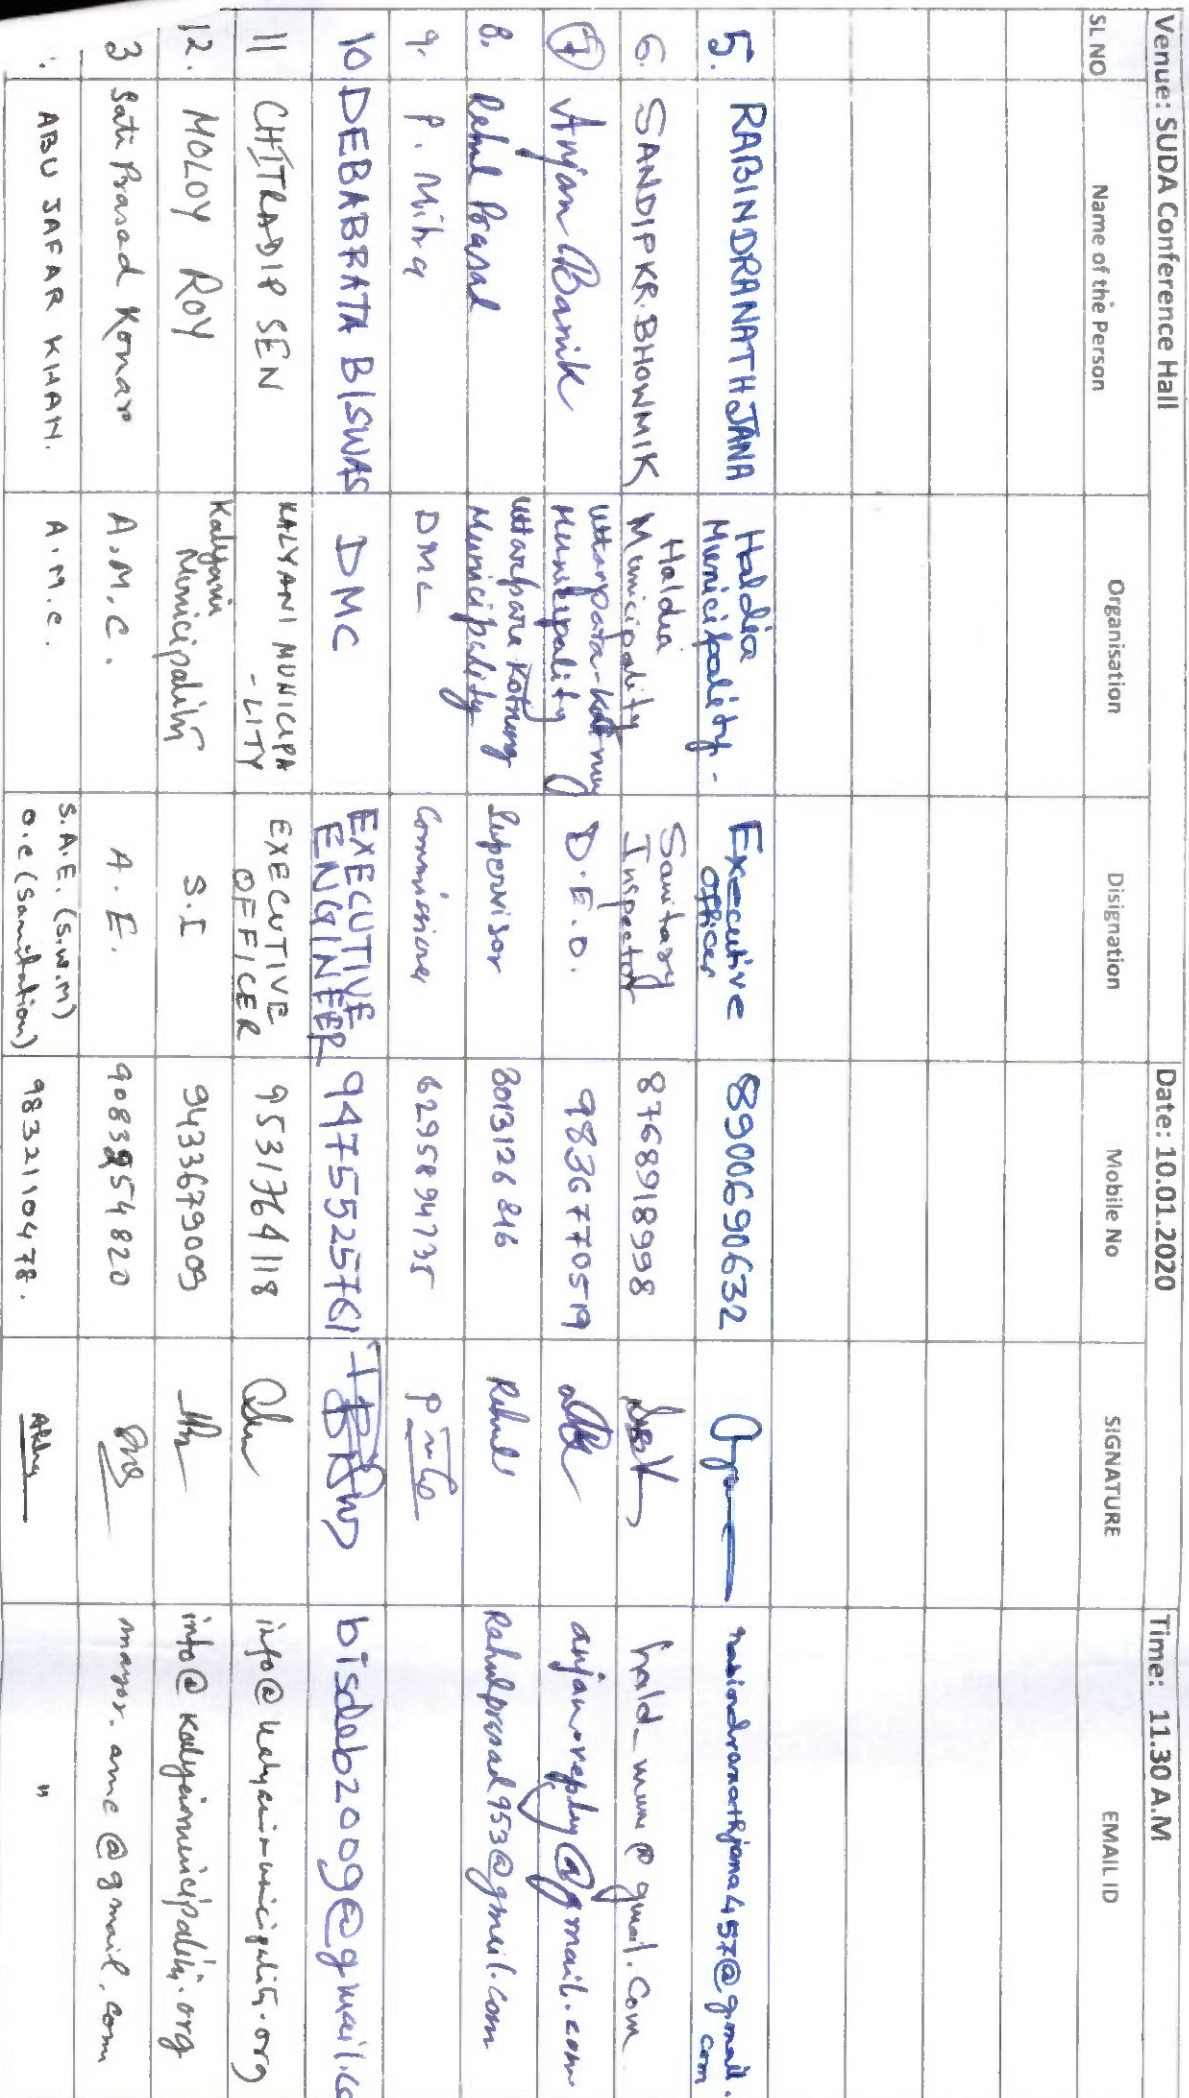 Venue: SUDA Conference Hall Date: 10.01.2020 Time: 11.30 A.M
SL NO Name of the Person Organisation Disignation Mobile No SIGNATURE EMAIL ID
5. RABINDRANATH JANA Haldia Municipality - Executive Officer 8900690632 rabindranathjana457@gmail.com
6. SANDIP KR. BHOWMIK Haldia Municipality Sanitary Inspector 8768918998 hald_mun@gmail.com
7 Anjan Banik Municipality D.E.O. 9836770519
8. Rahul Prasad Uttarpara Kotrung Municipality Supervisor 8013126816 Rahul Rahulprasad953@gmail.com
9. P. Mitra DMC Commissioner 6295894735
10 DEBABRATA BISWAS DMC EXECUTIVE ENGINEER 9475525761 bisdeb2009@gmail.co
11 CHITRADIP SEN KALYANI MUNICIPA
-LITY EXECUTIVE OFFICER 9531764118
12. MOLOY ROY Kalyani Municipality S.I 9433679009
3 Sati Prasad Konar A.M.C. A.E. mayor.amc@gmail.com
ABU JAFAR KHAN. A.M.C. S.A.E. (S.W.M)
O.C (Sanitation) 9832110478. "